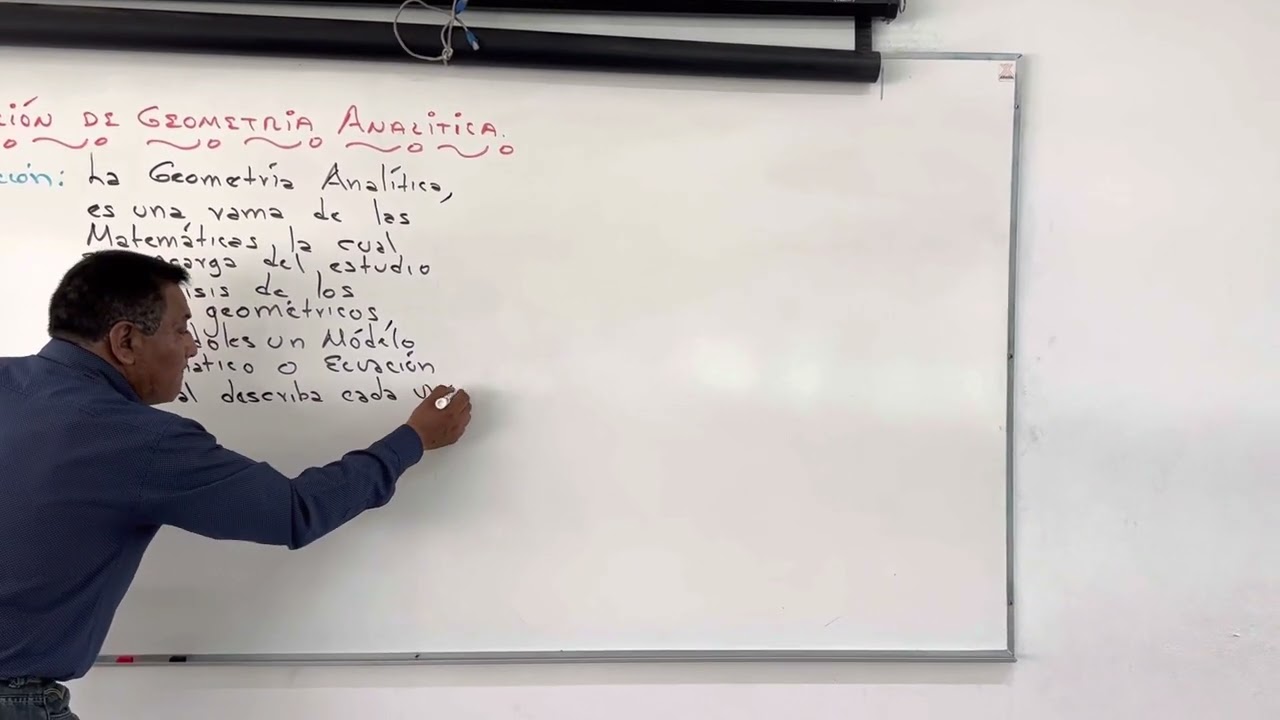 CIÓN DE GEOMETRIA ANALITICA.
ción: La Geometría Analítica,
es una rama de las
Matemáticas, la cual
carga del estudio
isis de los
geométricos,
doles un Módélo
ático o Ecuación
al describa cada